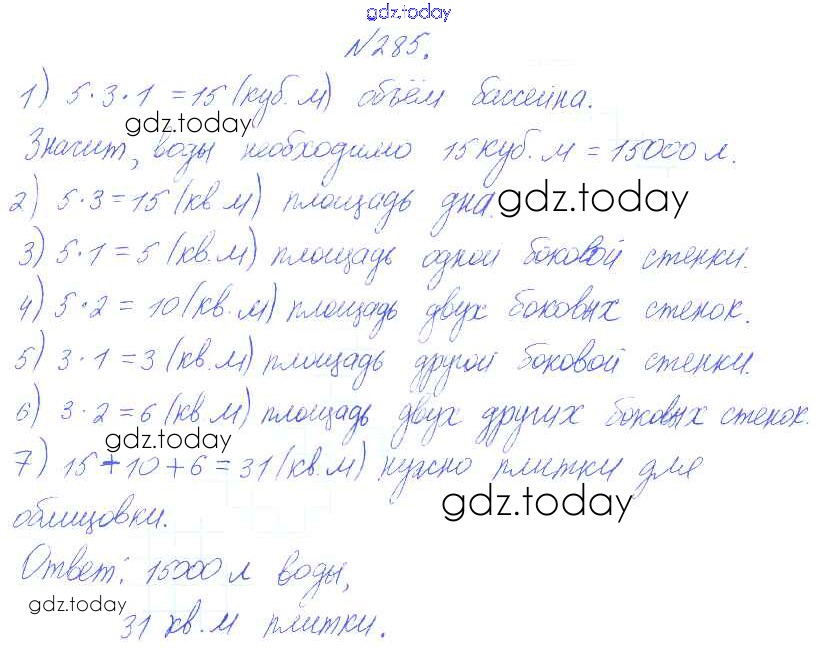 gdz.today
№285.
1) 5·3·1 = 15 (куб. м) объём бассейна.
gdz.today
Значит, воды необходимо 15 куб. м = 15000 л.
2) 5·3 = 15 (кв. м) площадь дна.
gdz.today
3) 5·1 = 5 (кв. м) площадь одной боковой стенки.
4) 5·2 = 10 (кв. м) площадь двух боковых стенок.
5) 3·1 = 3 (кв. м) площадь другой боковой стенки.
6) 3·2 = 6 (кв м) площадь двух других боковых стенок.
gdz.today
7) 15 + 10 + 6 = 31 (кв. м) нужно плитки для
gdz.today
облицовки.
Ответ: 15000 л воды,
gdz.today
31 кв. м плитки.